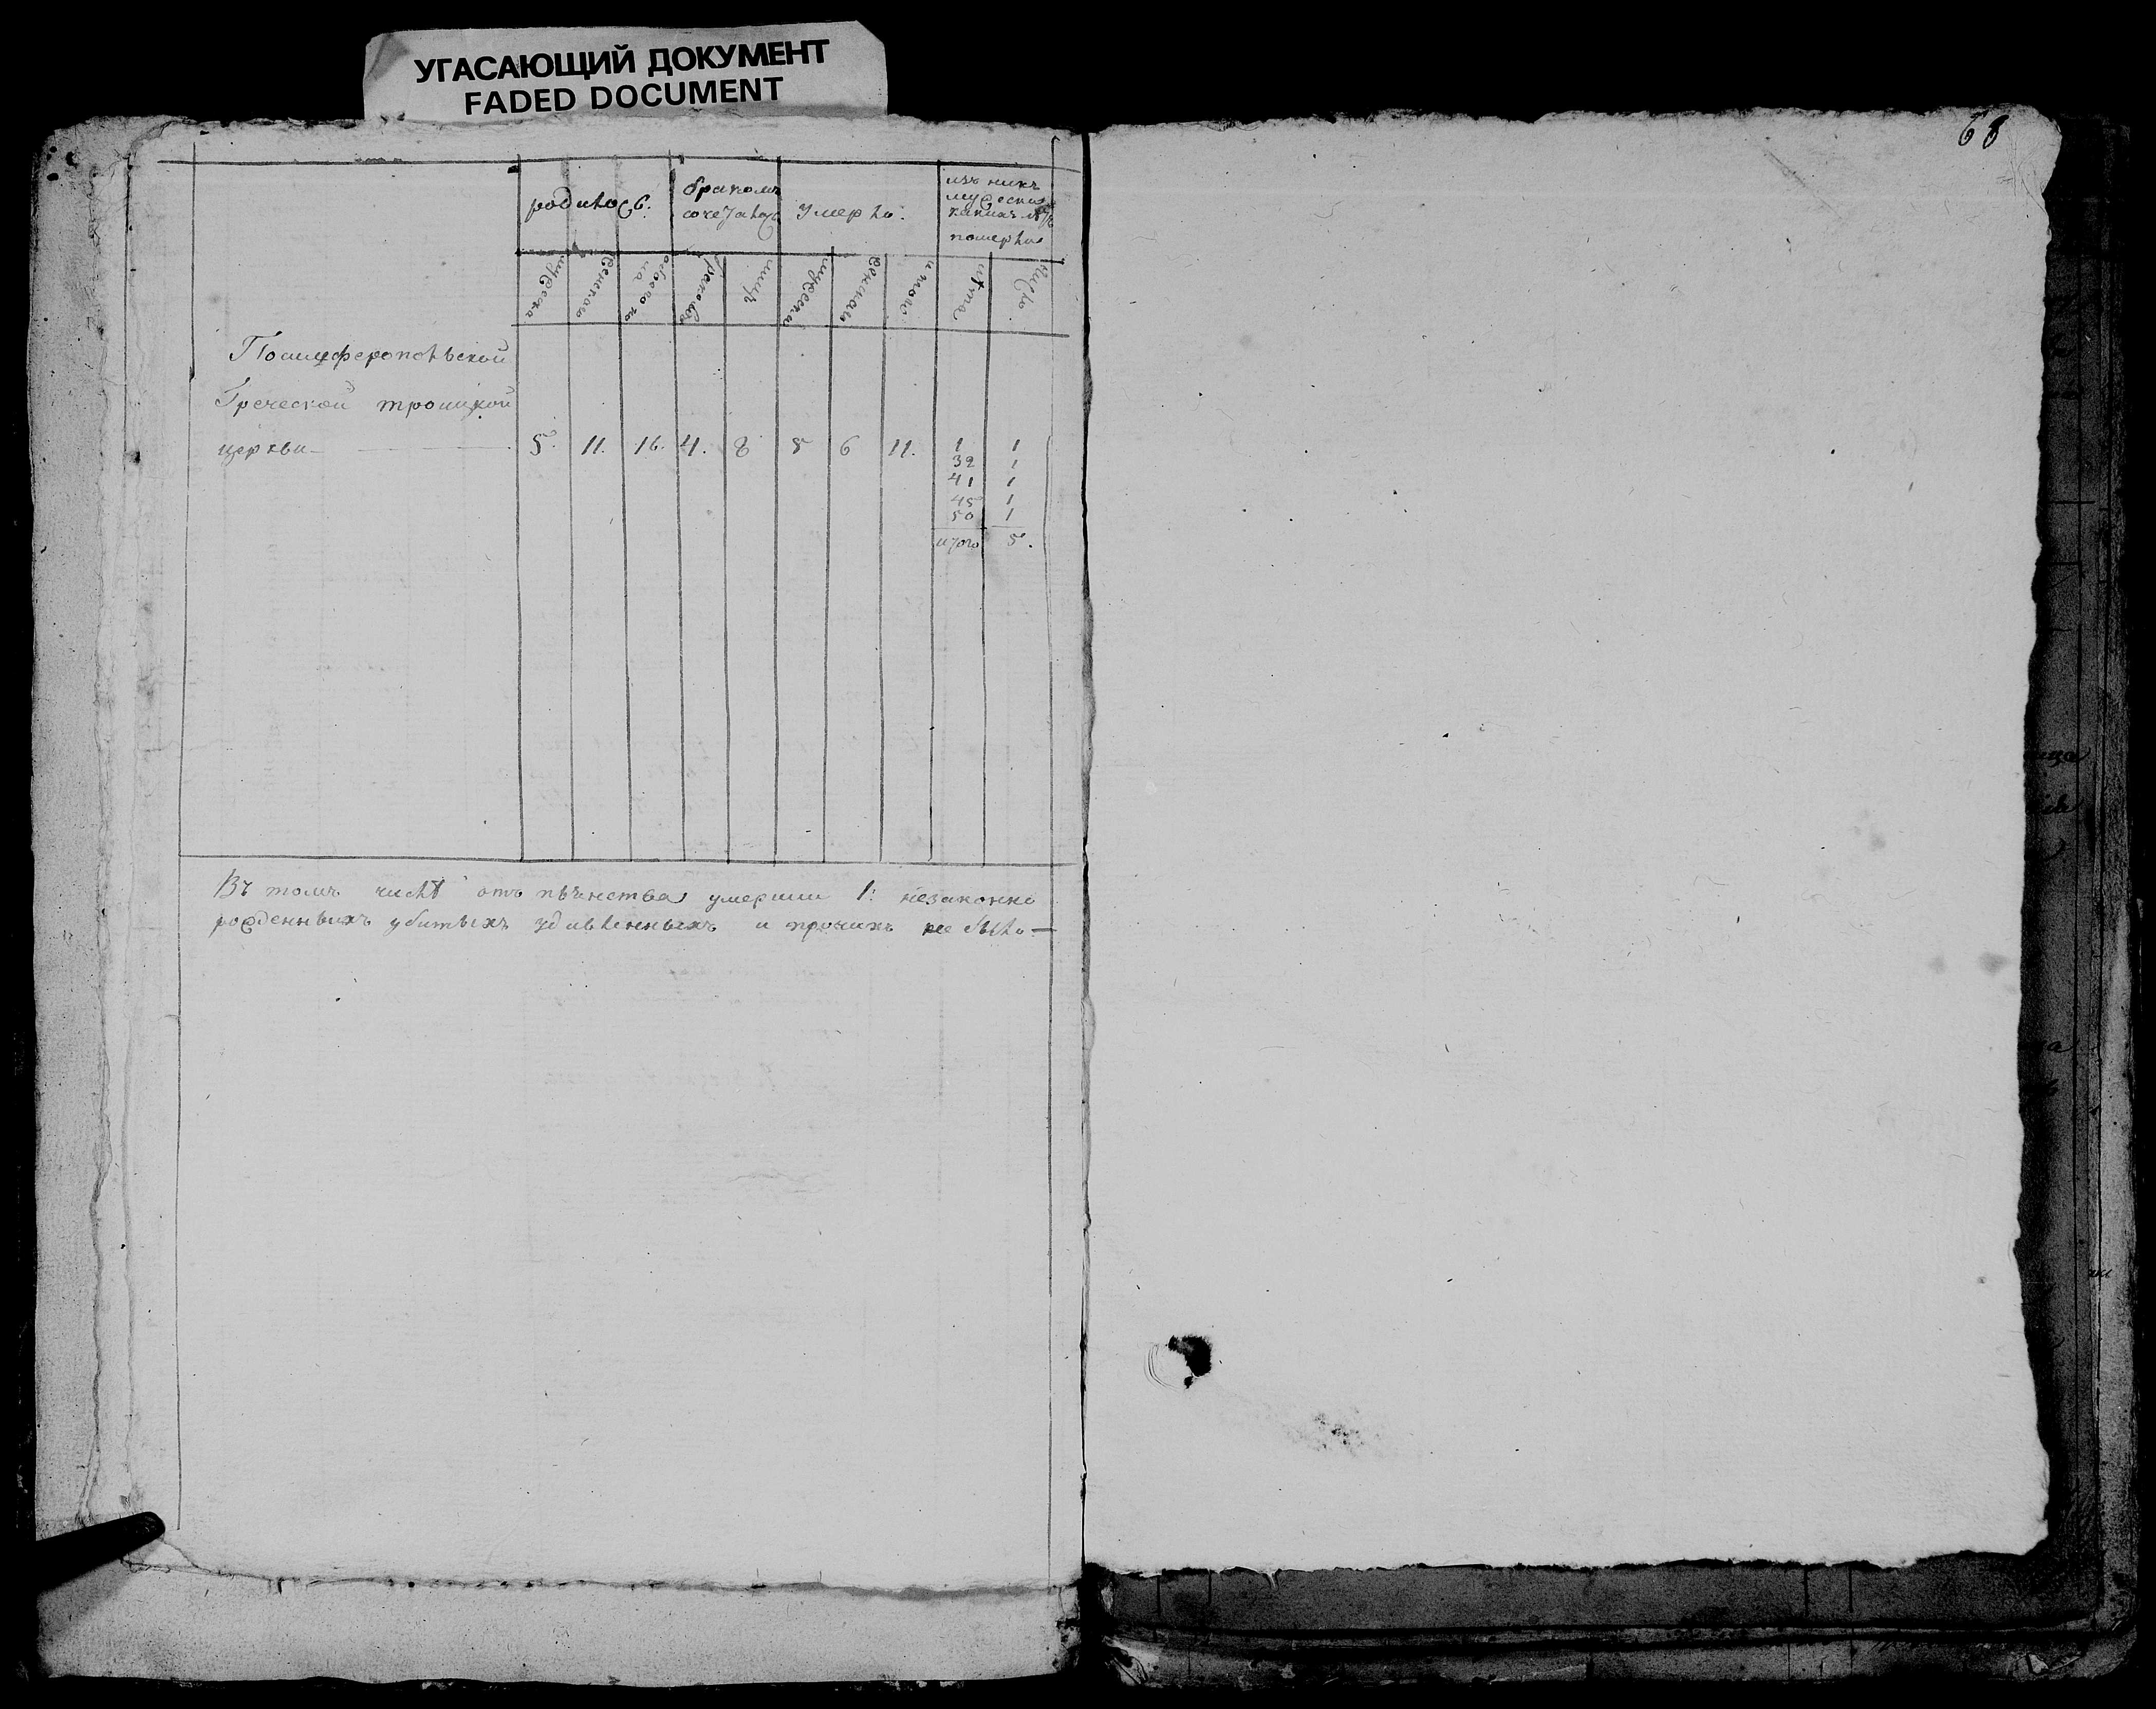 УГАСАЮЩИЙ ДОКУМЕНТ
FADED DOCUMENT
68
родилось.
бракомъ
сочеталось
умерло.
изъ нихъ
мужеска
какихъ лѣтъ
померло
мужеска
женскаго
обоего
на
браковъ
лицъ
мужеска
женскаго
итого
лѣта
число
По симферопольской
Греческой троицкой
церкви — 5. 11. 16. 4. 8 5 6 11. 1 1
32 1
41 1
45 1
50 1
итого 5.
Въ томъ числѣ отъ пьянства умерши 1: незаконно
рожденныхъ убитыхъ удивленныхъ и прочихъ не было —